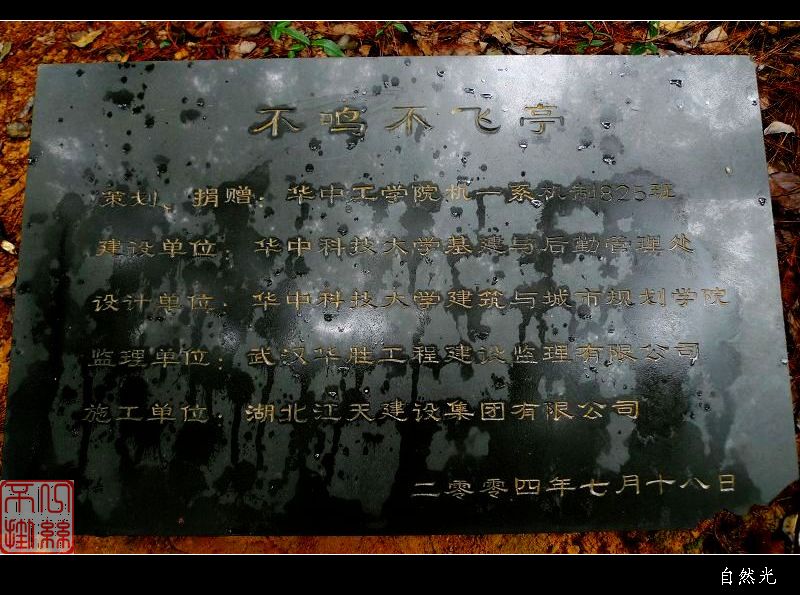 不鸣不飞亭
策划、捐赠：华中工学院机一系机制825班
建设单位：华中科技大学基建与后勤管理处
设计单位：华中科技大学建筑与城市规划学院
监理单位：武汉华胜工程建设监理有限公司
施工单位：湖北江天建设集团有限公司
二零零四年七月十八日
自然光